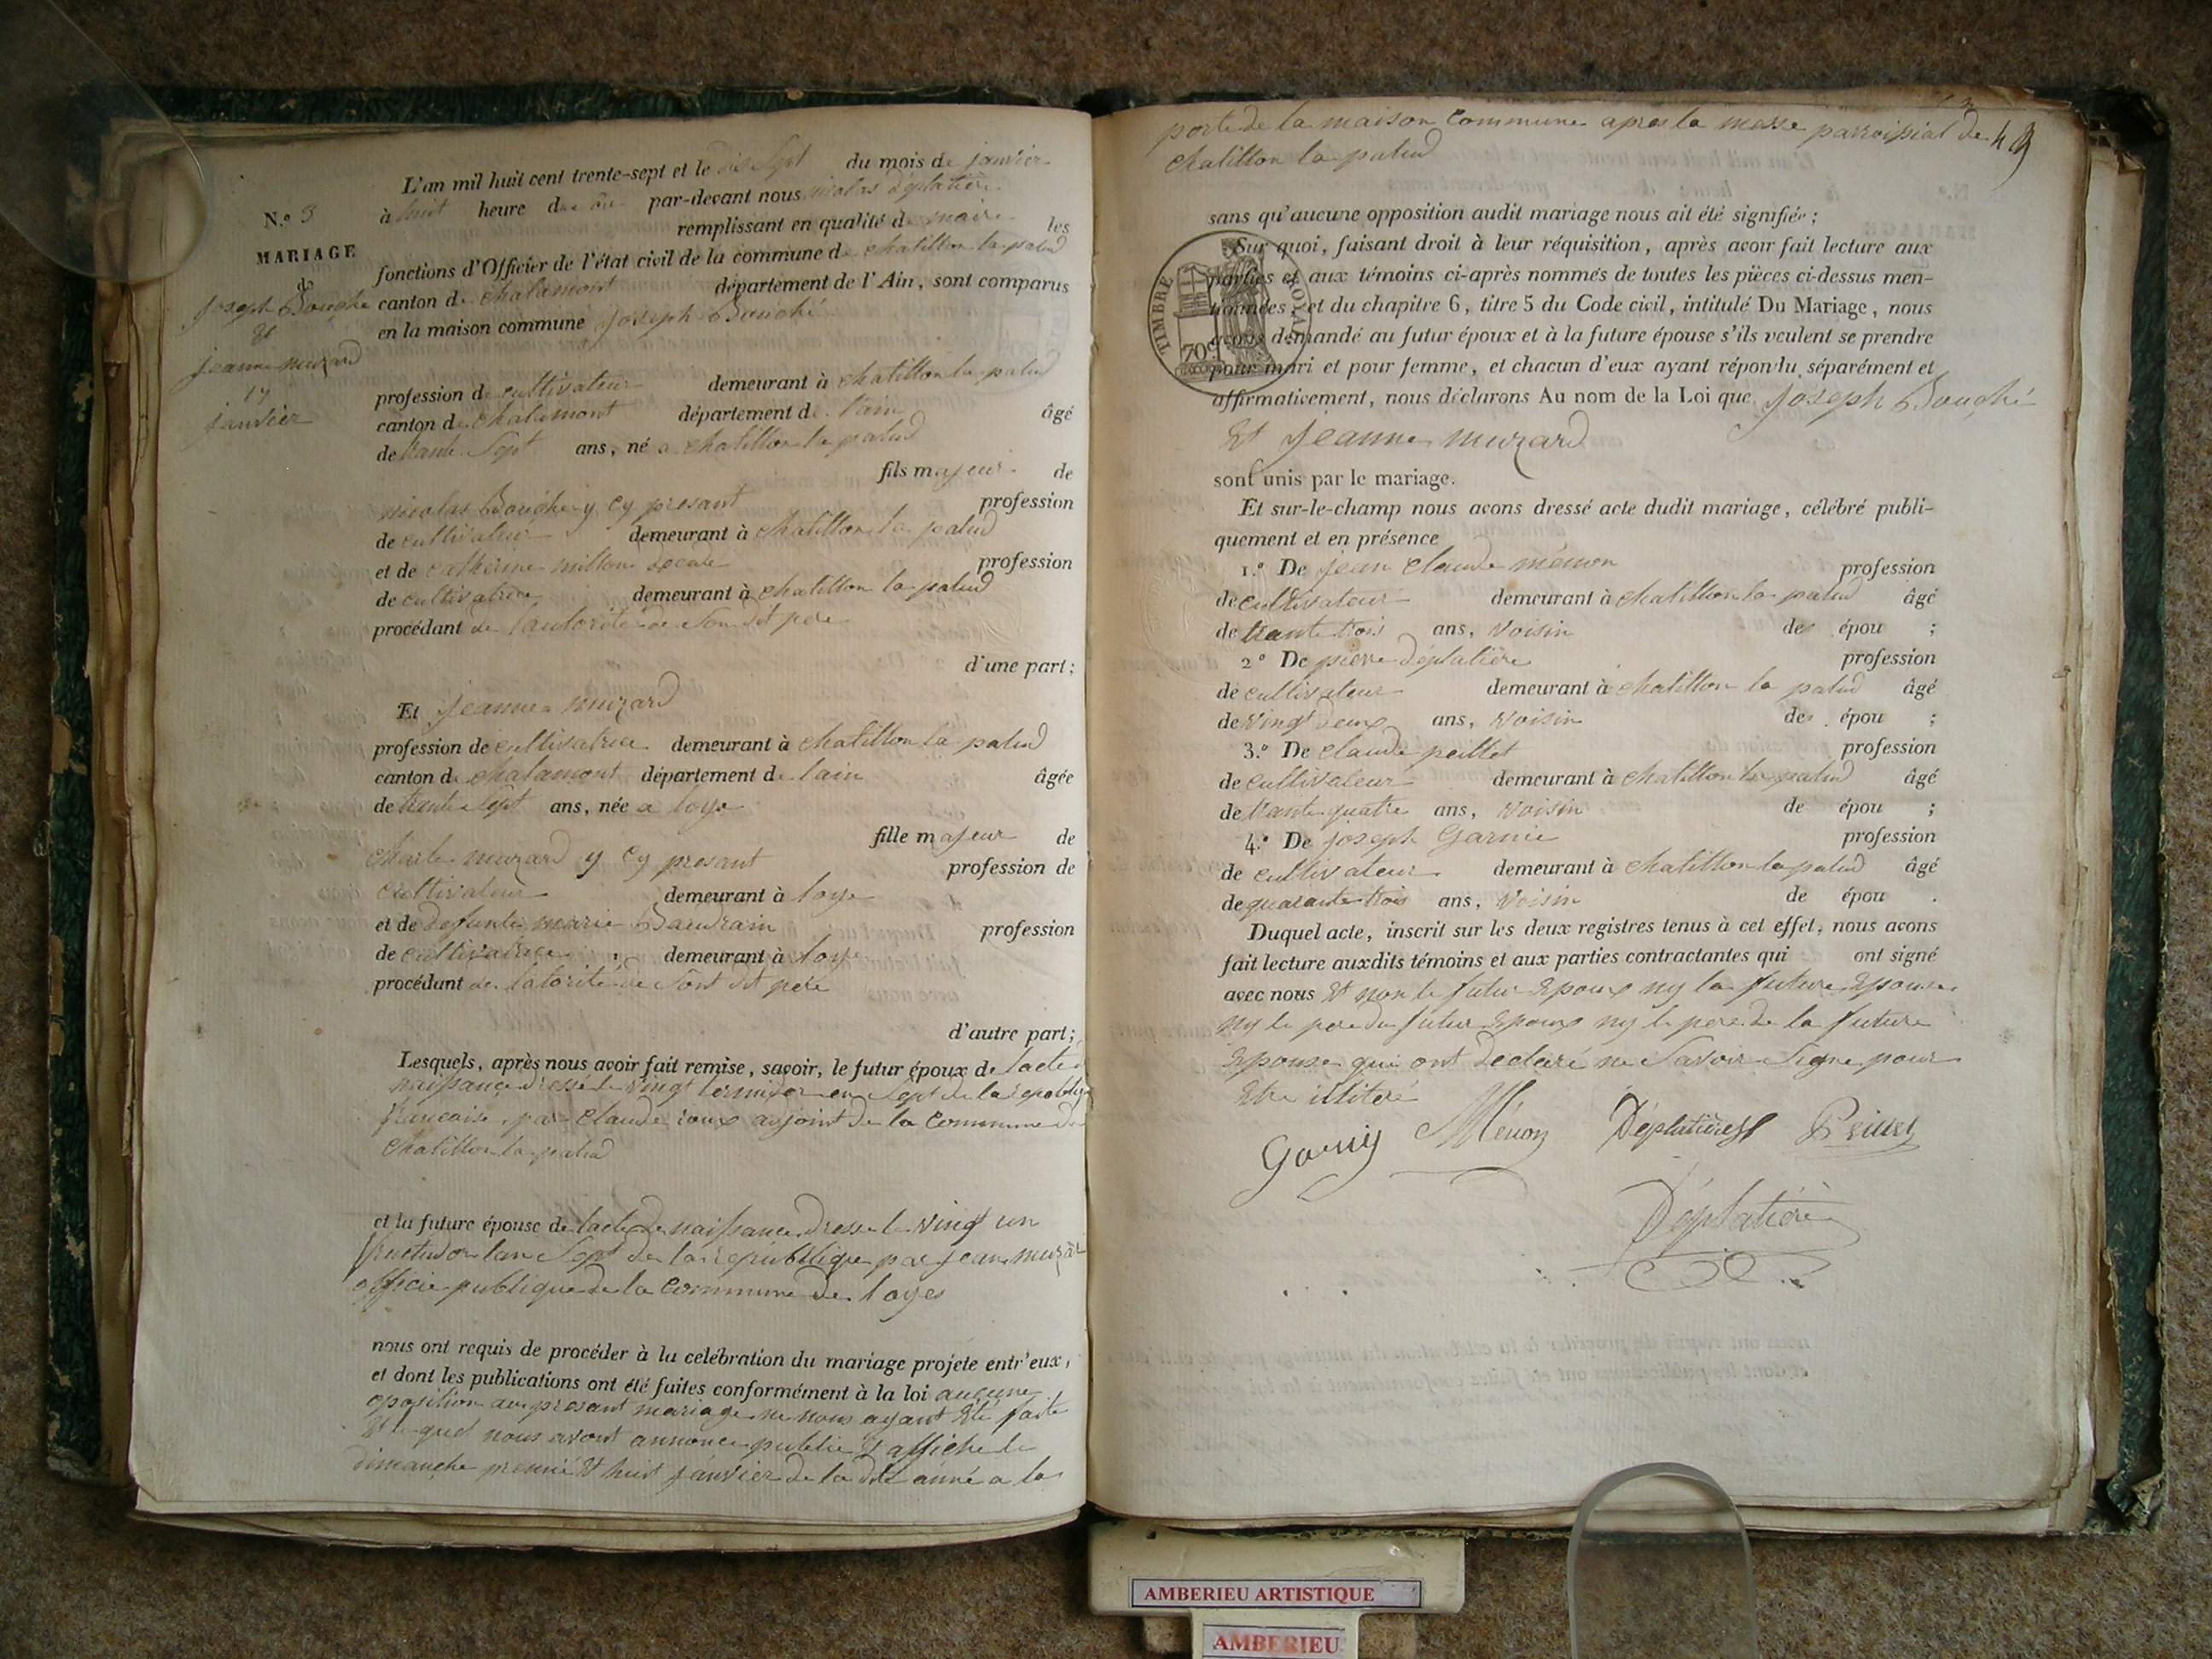 N.º 3
MARIAGE
de
Joseph Bouché
Et
jeanne muzard
17
janvier
L'an mil huit cent trente-sept et le dis Sept du mois de janvier
à huit heure du par-devant nous nicolas déplatière
remplissant en qualité de maire les
fonctions d'Officier de l'état civil de la commune de chatillon la palud
canton de chalamont département de l'Ain, sont comparus
en la maison commune joseph Bouché
profession de cultivateur demeurant à chatillon la palud
canton de chalamont département de lain âgé
de trante Sept ans, né a chatillon la palud
fils majeur de
nicolas Bouché y cy presant profession
de cultivateur demeurant à chatillon la palud
et de catherine millon profession
de cultivatrice demeurant à chatillon la palud
procédant de lautorité de Son dit pere
d'une part;
Et jeanne muzard
profession de cultivatrice demeurant à chatillon la palud
canton de chalamont département de lain âgée
de trante Sept ans, née a loye
fille majeur de
charle muzard y cy presant profession de
cultivateur demeurant à loye
et de defunte marie Baudrain profession
de cultivatrice demeurant à loye
procédant de latorité de Sont dit pere
d'autre part;
Lesquels, après nous avoir fait remise, savoir, le futur époux de lacte de
naissance dressé le vingt termidor en Sept de la republique
francaise par claude roux adjoint de la commune de
chatillon la palud
et la future épouse de lacte de naissance dresse le vingt un
fructudor lan Sept de la republique par jean muzar
officie publique de la commune de loyes
nous ont requis de procéder à la celébration du mariage projeté entr'eux,
et dont les publications ont été faites conformément à la loi aucune
oposition au presant mariage ne nous ayant Eté faite
Et le quel nous avont annonce publié Et affiche le
dimanche premié Et huit janvier de la dite anné a la
porte de la maison commune apres la messe parroissial de 49
chatillon la palud
sans qu'aucune opposition audit mariage nous ait été signifiée;
Sur quoi, faisant droit à leur réquisition, après avoir fait lecture aux
parties et aux témoins ci-après nommés de toutes les pièces ci-dessus men-
tionnées, et du chapitre 6, titre 5 du Code civil, intitulé Du Mariage, nous
avons demandé au futur époux et à la future épouse s'ils veulent se prendre
pour mari et pour femme, et chacun d'eux ayant répondu séparément et
affirmativement, nous déclarons Au nom de la Loi que joseph Bouché
Et jeanne muzard
TIMBRE ROYAL
70c
sont unis par le mariage.
Et sur-le-champ nous avons dressé acte dudit mariage, célébré publi-
quement et en présence
1.º De jean claude ménon profession
de cultivateur demeurant à chatillon la palud âgé
de trante trois ans, voisin des épou ;
2º De pierre déplatière profession
de cultivateur demeurant à chatillon la palud âgé
de vingt deux ans, voisin des épou ;
3.º De claude peillet profession
de cultivateur demeurant à chatillon la palud âgé
de trante quatre ans, voisin de épou ;
4.º De joseph Garnie profession
de cultivateur demeurant à chatillon la palud âgé
de quarante trois ans, voisin de épou .
Duquel acte, inscrit sur les deux registres tenus à cet effet, nous avons
fait lecture auxdits témoins et aux parties contractantes qui ont signé
avec nous Et non le futur Epoux ny la future Epouse
ny le pere du futur Epoux ny le pere de la future
Epouse qui ont declaré ne Savoir Signe pour
Etre illiteré
Garnij Ménon Déplatière Peillet
Déplatière
AMBERIEU ARTISTIQUE
AMBERIEU